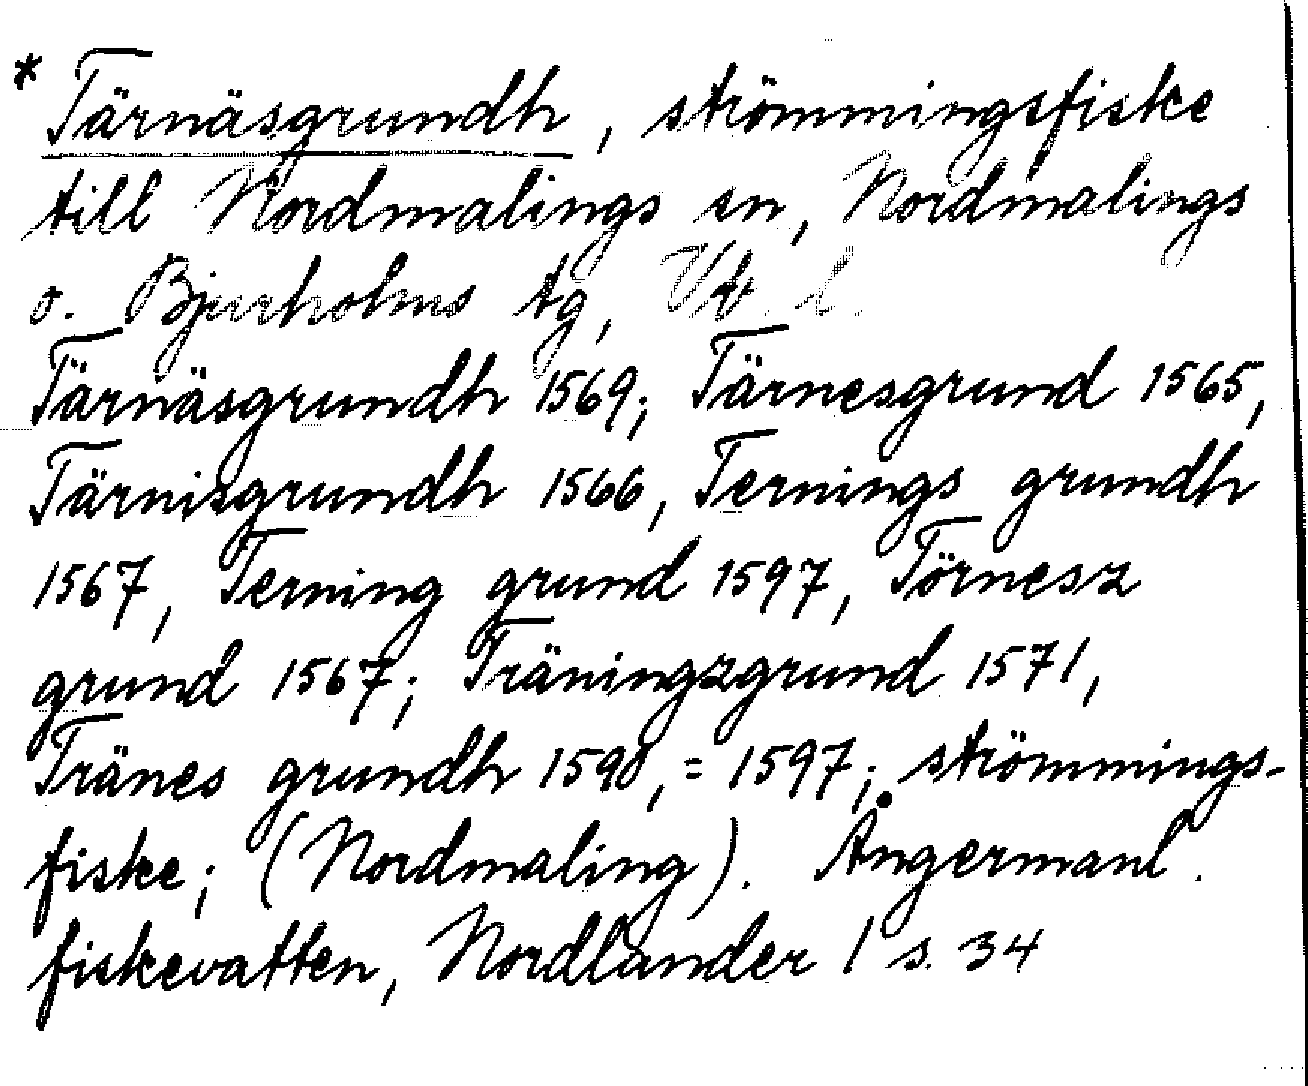 * Tärnäsgrundh, strömmingsfiske
till Nordmalings sn, Nordmalings
o. Bjurholms tg, Vb. l.
Tärnäsgrundh 1569; Tärnesgrund 1565,
Tärnisgrundh 1566, Ternings grundh
1567, Terning grund 1597, Törnesz
grund 1567; Träningzgrund 1571,
Tränes grundh 1590, = 1597; strömmings-
fiske; (Nordmaling). Ångermanl.
fiskevatten, Nordlander 1 s. 34